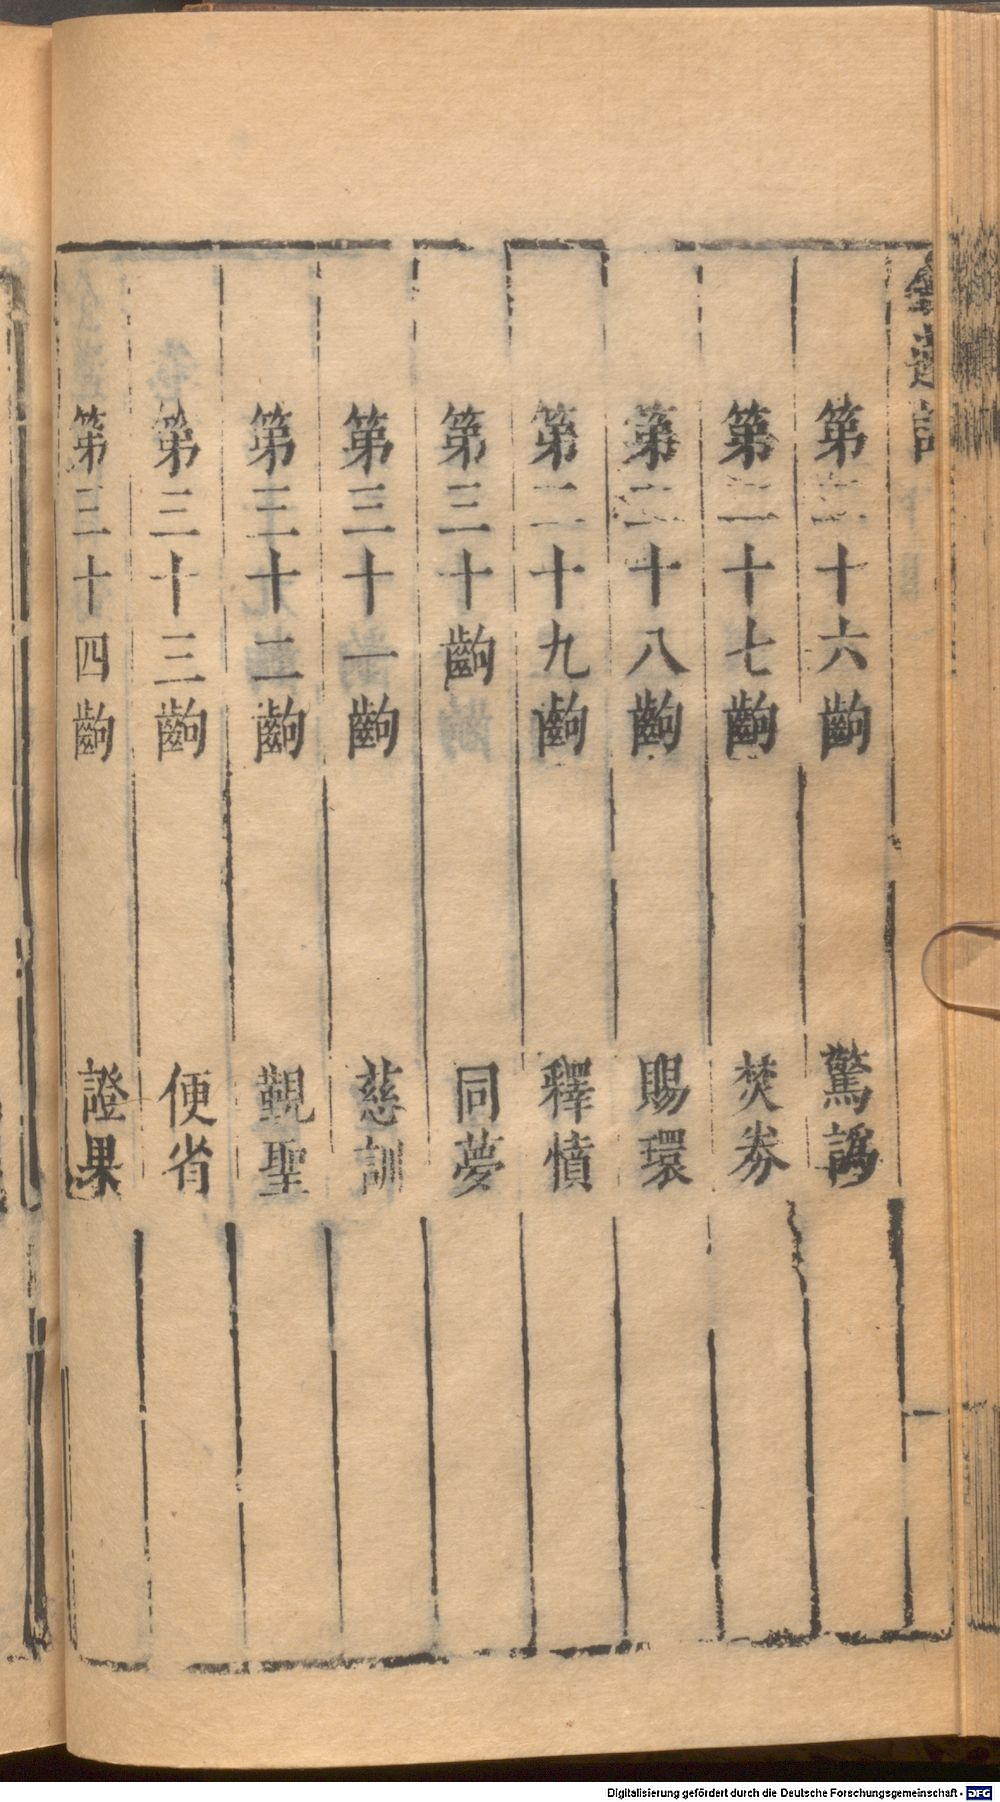 第二十六齣 驚譌
第二十七齣 焚券
第二十八齣 賜環
第二十九齣 釋憤
第三十齣 同夢
第三十一齣 慈訓
第三十二齣 覲聖
第三十三齣 便省
第三十四齣 證果
Digitalisierung gefördert durch die Deutsche Forschungsgemeinschaft - DFG